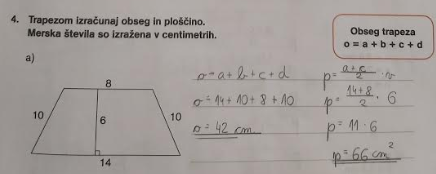 4. Trapezom izračunaj obseg in ploščino.
Merska števila so izražena v centimetrih.
Obseg trapeza
o = a + b + c + d
a)
8
10
6
10
14
o = a + b + c + d
o = 14 + 10 + 8 + 10
o = 42 cm
p = a+c/2 · v
p = 14+8/2 · 6
p = 11 · 6
p = 66 cm²